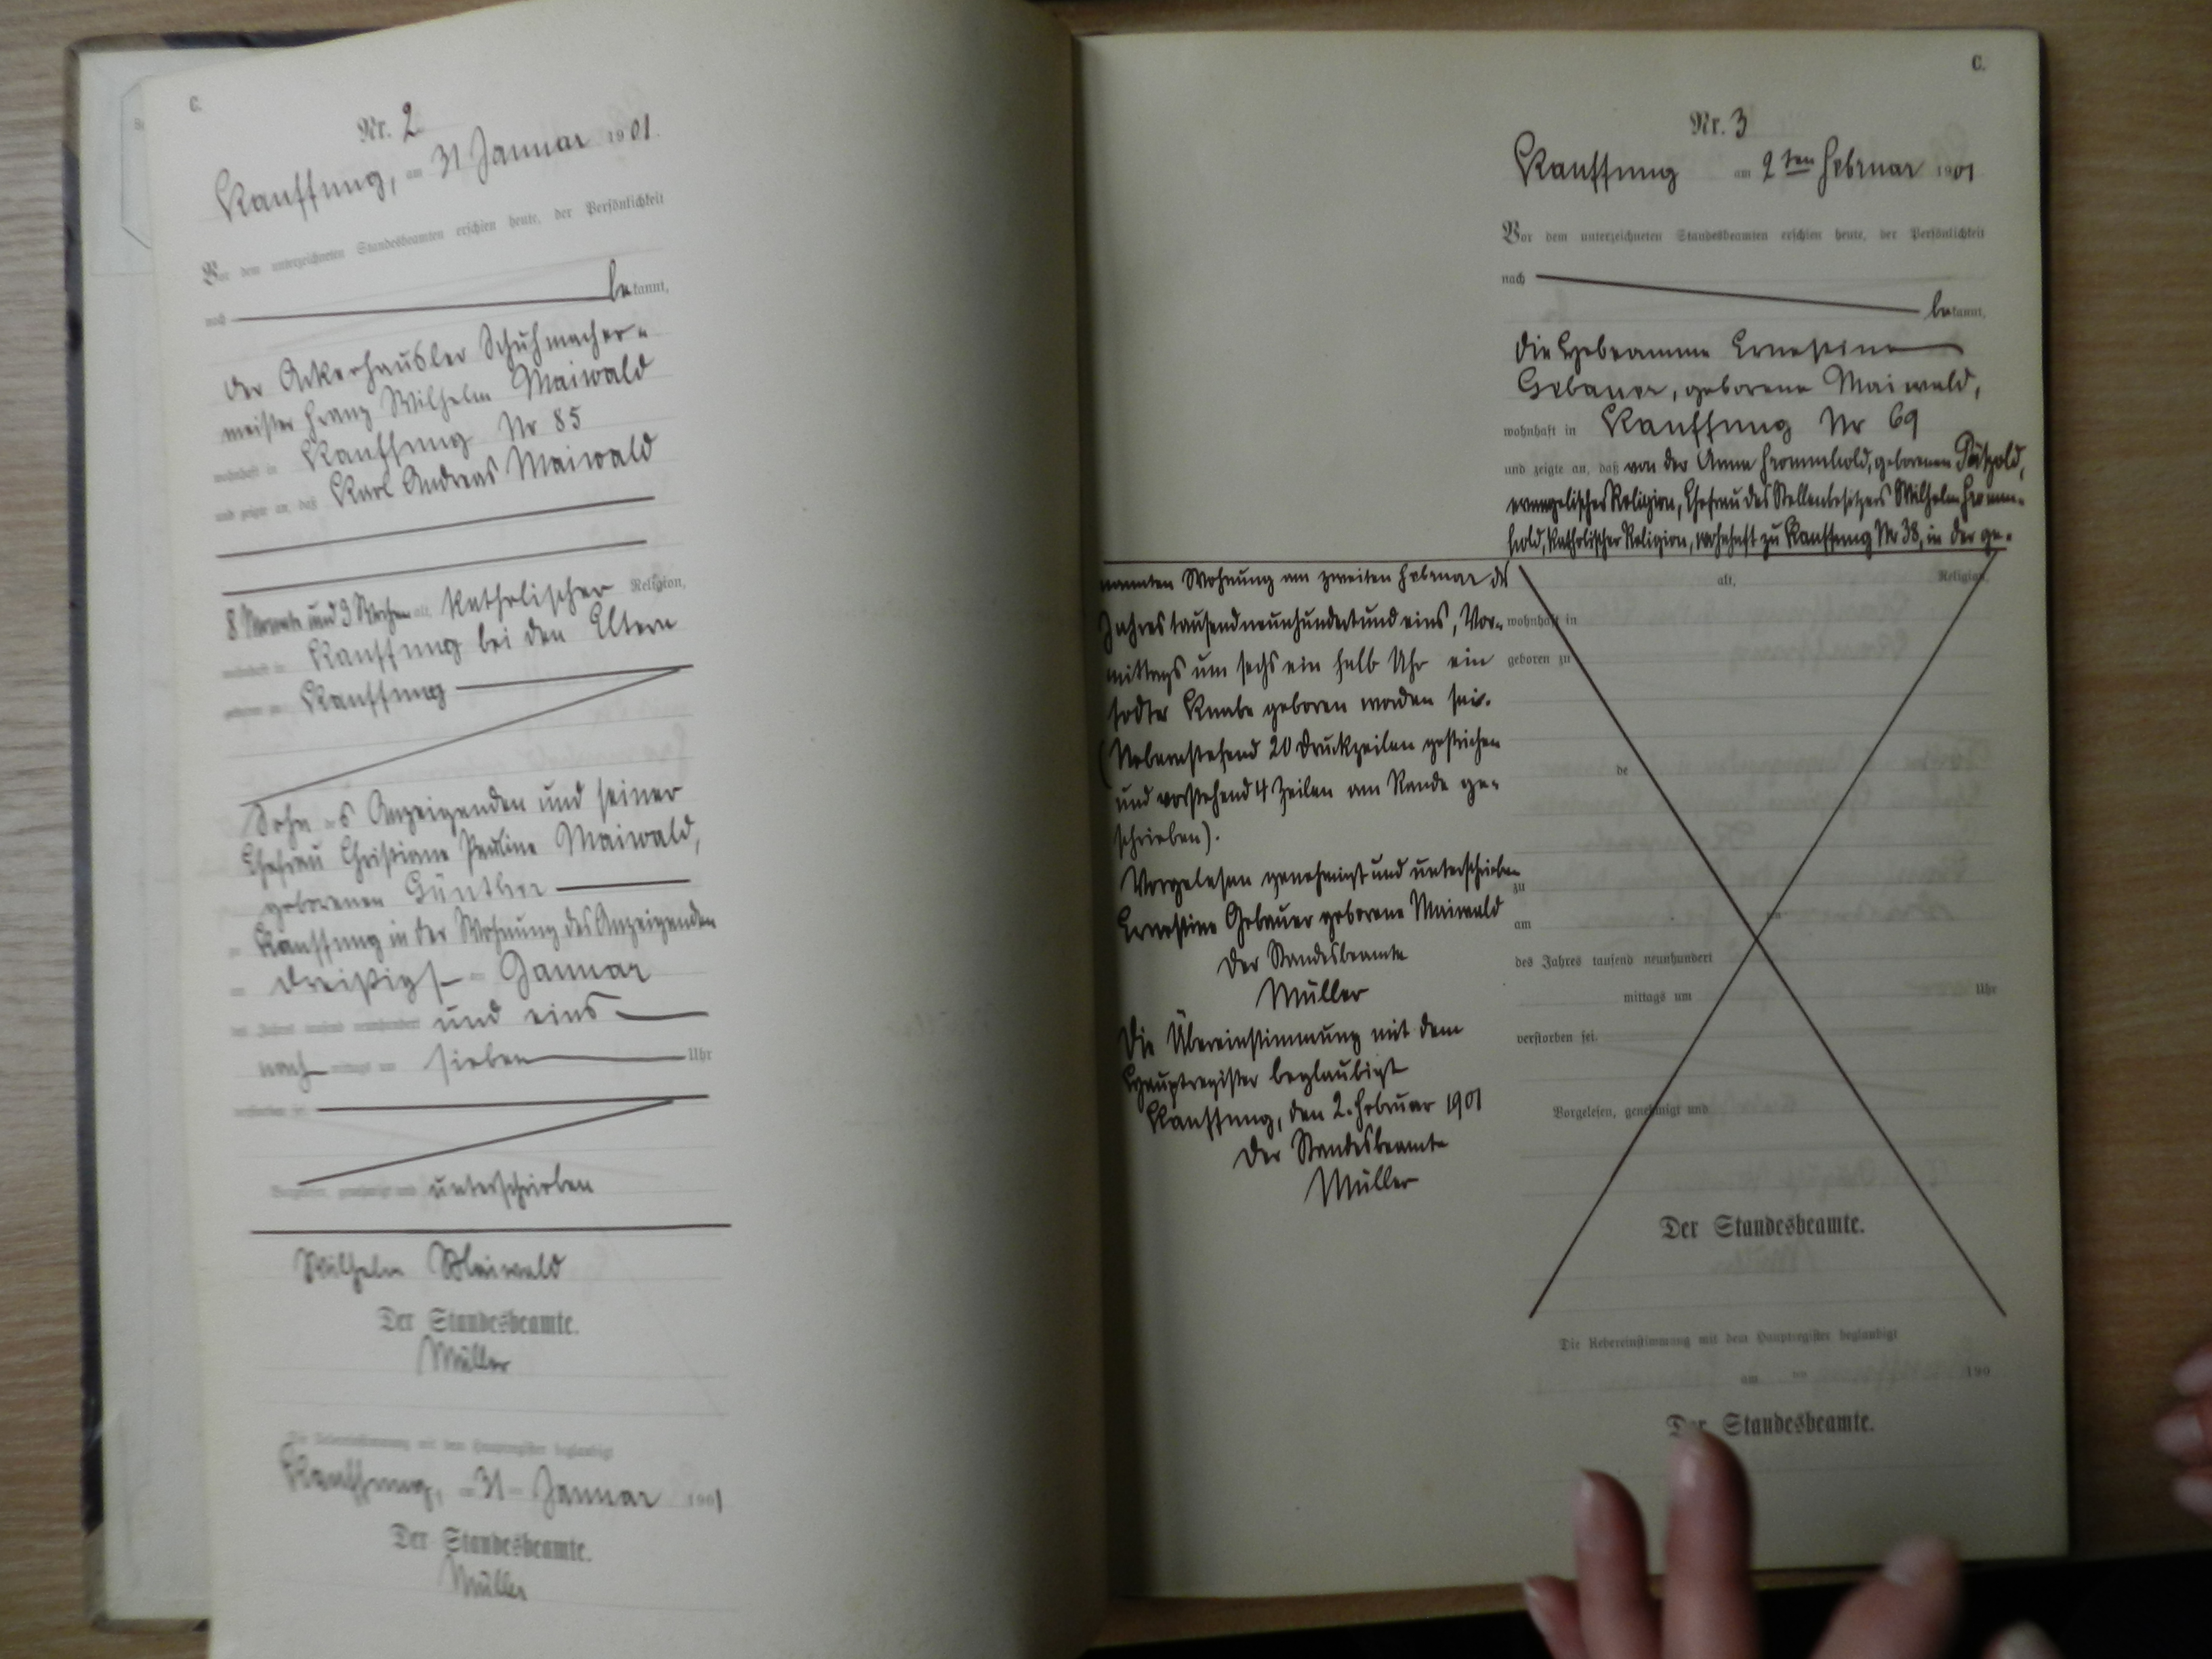 C.
Nr. 2
Kauffung, am 31 Januar 1901.
Vor dem unterzeichneten Standesbeamten erschien heute, der Persönlichkeit
nach bekannt,
der Ackerhäusler Schuhmacher-
meister Franz Wilhelm Maiwald
wohnhaft in Kauffung Nr 85
und zeigte an, daß Karl Andreas Maiwald
8 Monate und 3 Wochen alt, katholischer Religion,
wohnhaft in Kauffung bei den Eltern
geboren zu Kauffung
Sohn des Anzeigenden und seiner
Ehefrau Christiane Pauline Maiwald,
geborenen Günther
zu Kauffung in der Wohnung des Anzeigenden
am dreißigsten Januar
des Jahres tausend neunhundert und eins
nachmittags um sieben Uhr
verstorben sei.
Vorgelesen, genehmigt und unterschrieben
Wilhelm Maiwald
Der Standesbeamte.
Müller
Die Uebereinstimmung mit dem Hauptregister beglaubigt
Kauffung, am 31 ten Januar 1901
Der Standesbeamte.
Müller
C.
Nr. 3
Kauffung am 2ten Februar 1901
Vor dem unterzeichneten Standesbeamten erschien heute, der Persönlichkeit
nach bekannt,
die Hebeamme Ernestine
Gebauer, geborene Maiwald,
wohnhaft in Kauffung Nr 69
und zeigte an, daß von der Anna Frommhold, geborenen Pätzold,
evangelischer Religion, Ehefrau des Stellenbesitzers Wilhelm Fromm-
hold, katholischer Religion, wohnhaft zu Kauffung Nr 38, in der ge-
nannten Wohnung am zweiten Februar des
Jahres tausendneunhundertundeins, Vor-
mittags um sechs ein halb Uhr ein
todter Knabe geboren worden sei.
(Nebenstehend 20 Druckzeilen gestrichen
und vorstehend 4 Zeilen am Rande ge-
schrieben).
Vorgelesen genehmigt und unterschrieben
Ernestine Gebauer geborene Maiwald
Der Standesbeamte
Müller
Die Übereinstimmung mit dem
Hauptregister beglaubigt
Kauffung, den 2. Februar 1901
Der Standesbeamte
Müller
alt, Religion,
wohnhaft in
geboren zu
de
zu
am ten
des Jahres tausend neunhundert
mittags um Uhr
verstorben sei.
Vorgelesen, genehmigt und
Der Standesbeamte.
Die Uebereinstimmung mit dem Hauptregister beglaubigt
am ten 190
Der Standesbeamte.